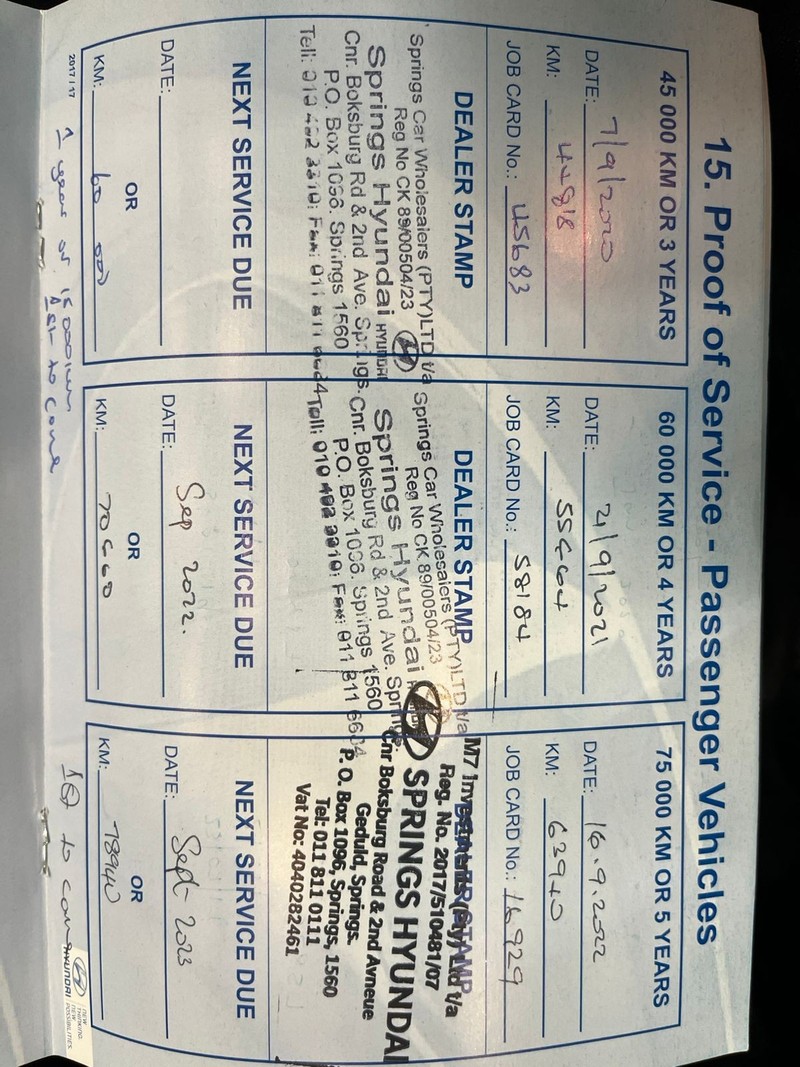 15. Proof of Service - Passenger Vehicles
45 000 KM OR 3 YEARS
DATE: 7/9/2020
KM: 44818
JOB CARD No.: 45683
DEALER STAMP
Springs Car Wholesalers (PTY)LTD t/a
Reg No CK 89/00504/23
Springs Hyundai HYUNDAI
Cnr. Boksburg Rd & 2nd Ave. Springs.
P.O. Box 1096. Springs 1560
NEXT SERVICE DUE
DATE:
OR
KM: 60 000
2017 / 17
1 year or 15000km
1st to come
60 000 KM OR 4 YEARS
DATE: 21/9/2021
KM: 55464
JOB CARD No.: 58184
DEALER STAMP
Springs Car Wholesalers (PTY)LTD t/a
Reg No CK 89/00504/23
Springs Hyundai
Cnr. Boksburg Rd & 2nd Ave. Springs
P.O. Box 1096. Springs 1560
NEXT SERVICE DUE
DATE: Sep 2022.
OR
KM: 70460
75 000 KM OR 5 YEARS
DATE: 16.9.2022
KM: 63940
JOB CARD No.: 16929
DEALER STAMP
M7 Investments (Pty) Ltd t/a
Reg. No. 2017/510481/07
SPRINGS HYUNDAI
Cnr Boksburg Road & 2nd Avneue
Geduld, Springs.
P. O. Box 1096, Springs, 1560
Tel: 011 811 0111
Vat No: 4040282461
NEXT SERVICE DUE
DATE: Sept 2023
OR
KM: 78940
1st to come
HYUNDAI
NEW
THINKING.
NEW
POSSIBILITIES.